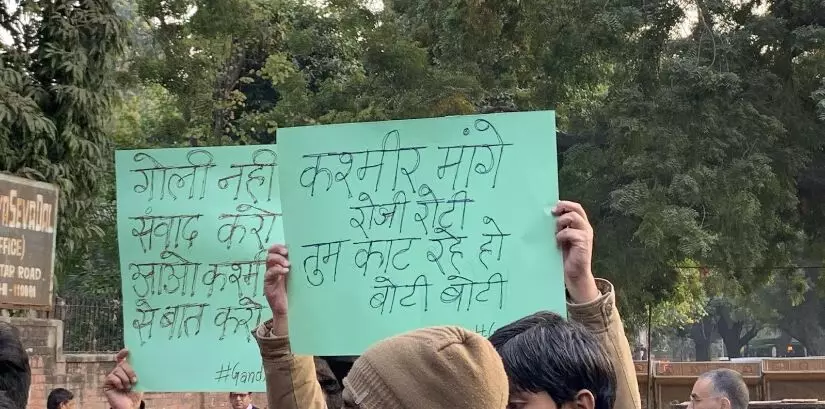 गोली नही
संवाद करो
जाओ कश्मी
से बात करो
#Gand
कश्मीर मांगे
रोजी रोटी
तुम काट रहे हो
बोटी बोटी
#G
SevaDal
FFICE)
TAR ROAD
110001